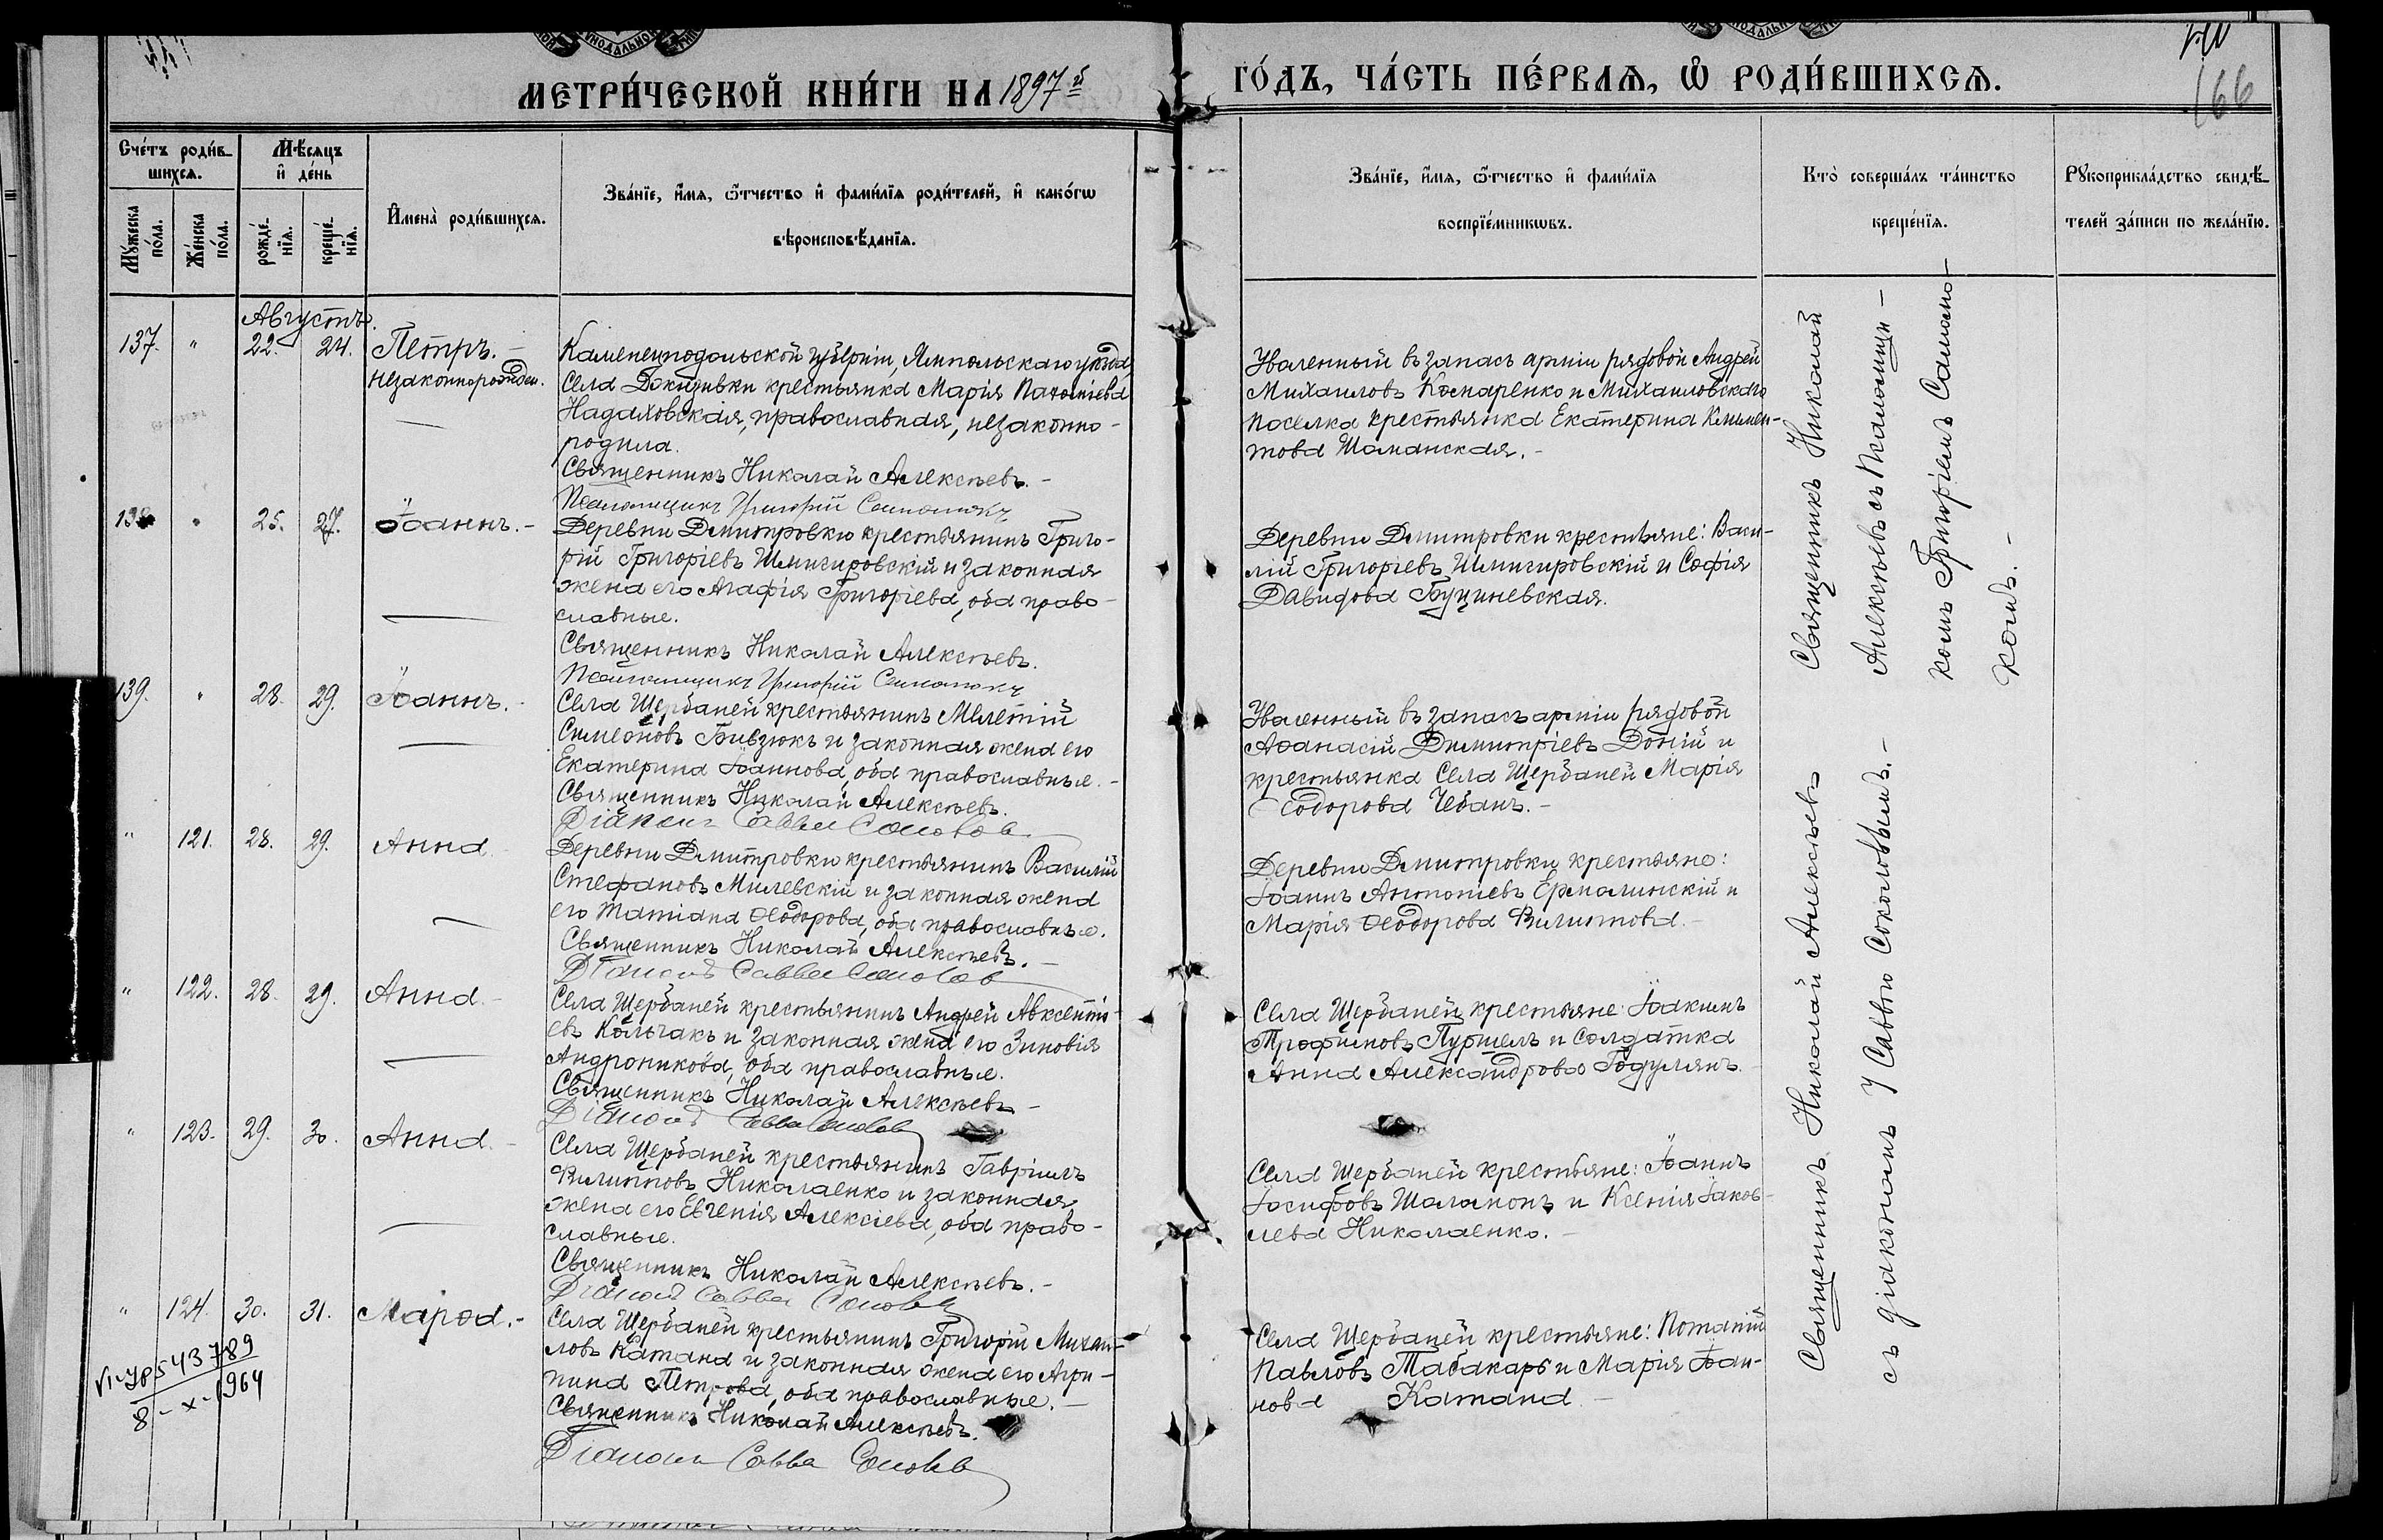 МЕТРИ́ЧЕСКОЙ КНИ́ГИ НА 1897й ГО́ДЪ, ЧА́СТЬ ПЕ́РВАѦ, Ѡ҆ РОДИ́ВШИХСѦ.
166
Сче́тъ роди́в-
шихсѧ.
Му́жеска
по́ла.
Же́нска
по́ла.
Мѣ́сяцъ
и҆ де́нь
рожде́-
нїѧ.
креще́-
нїѧ.
И҆мена̀ роди́вшихсѧ.
Зва́нїе, и҆́мѧ, ѻ҆́тчество и҆ фами́лїѧ роди́телей, и҆ како́гѡ
вѣроисповѣ́данїѧ.
Зва́нїе, и҆́мѧ, ѻ҆́тчество и҆ фами́лїѧ
воспрїе́мникѡвъ.
Кто̀ соверша́лъ та́инство
креще́нїѧ.
Рꙋкоприкла́дство свидѣ́-
телей за́писи по жела́нїю.
Августъ.
137. " 22. 24. Петръ. -
незаконнорожден.
Каменецподольской губерніи, Ямпольскаго уѣзда
Села крестьянка Марія
Надаховская, православная, незаконно-
родила.
Священникъ Николай Алексѣевъ. -
Псаломщикъ Григорій
Уволенный въ запасъ арміи рядовой Андрей
Михаиловъ Коспаренко и Михаиловскаго
поселка крестьянка Екатерина Климен-
това Шаманская. -
138 " 25. 27. Іоаннъ. -
Деревни Дмитровки крестьянинъ Григо-
рій Григоріевъ Шмигировскій и законная
жена его Агафія Григоріева, оба право-
славные.
Священникъ Николай Алексѣевъ.
Псаломщикъ Григорій
Деревни Дмитровки крестьяне: Васи-
лій Григоріевъ Шмигировскій и Софія
Давидова Буциневская.
139. " 28. 29. Іоаннъ. -
Села Щербаней крестьянинъ Мелетій
Симеоновъ Бивзюкъ и законная жена его
Екатерина Іоаннова, оба православные. -
Священникъ Николай Алексѣевъ.
Діаконъ Савва Соколов
Уволенный въ запасъ арміи рядовой
Аѳанасій Димитріевъ Доній и
крестьянка Села Щербаней Марія
Ѳеодорова Чебанъ. -
" 121. 28. 29. Анна
Деревни Дмитровки крестьянинъ Василій
Стефановъ Милевскій и законная жена
его Татіана Ѳеодорова, оба православные.
Священникъ Николай Алексѣевъ. -
Діаконъ Савва Соколов
Деревни Дмитровки крестьяне:
Іоаннъ Антоніевъ Ермалинскій и
Марія Ѳеодорова Филипова. -
" 122. 28. 29. Анна. -
Села Щербаней крестьянинъ Андрей Авксенті-
евъ Кольчакъ и законная жена его Зиновія
Андроникова, оба православные.
Священникъ Николай Алексѣевъ -
Діаконъ Савва Соколов
Села Щербаней крестьяне: Іоакимъ
Трофимовъ Пуршелъ и солдатка
Анна Александрова Годулянъ.
" 123. 29. 30. Анна. -
Села Щербаней крестьянинъ Гавріилъ
Филиповъ Николаенко и законная
жена его Евгенія Алексіева, оба право-
славные.
Священникъ Николай Алексѣевъ. -
Діаконъ Савва Соколов
Села Щербаней крестьяне: Іоаннъ
Іосифовъ Шаламонъ и Ксенія Іаков-
лева Николаенко. -
" 124. 30. 31. Марѳа. -
Села Щербаней крестьянинъ Григорій Михаи-
ловъ Катана и законная жена его Агри-
пина Петрова, оба православные. -
Священникъ Николай Алексѣевъ.
Діаконъ Савва Соколов
Села Щербаней крестьяне: Потапій
Павловъ Табакаръ и Марія Іоан-
нова Катана -
VI-ЯР 543789
8-X-1964
Священникъ Николай
Алексѣевъ съ Псаломщи-
комъ Григоріемъ
комъ. -
Священникъ Николай Алексѣевъ
съ діакономъ Саввою Соколовымъ. -